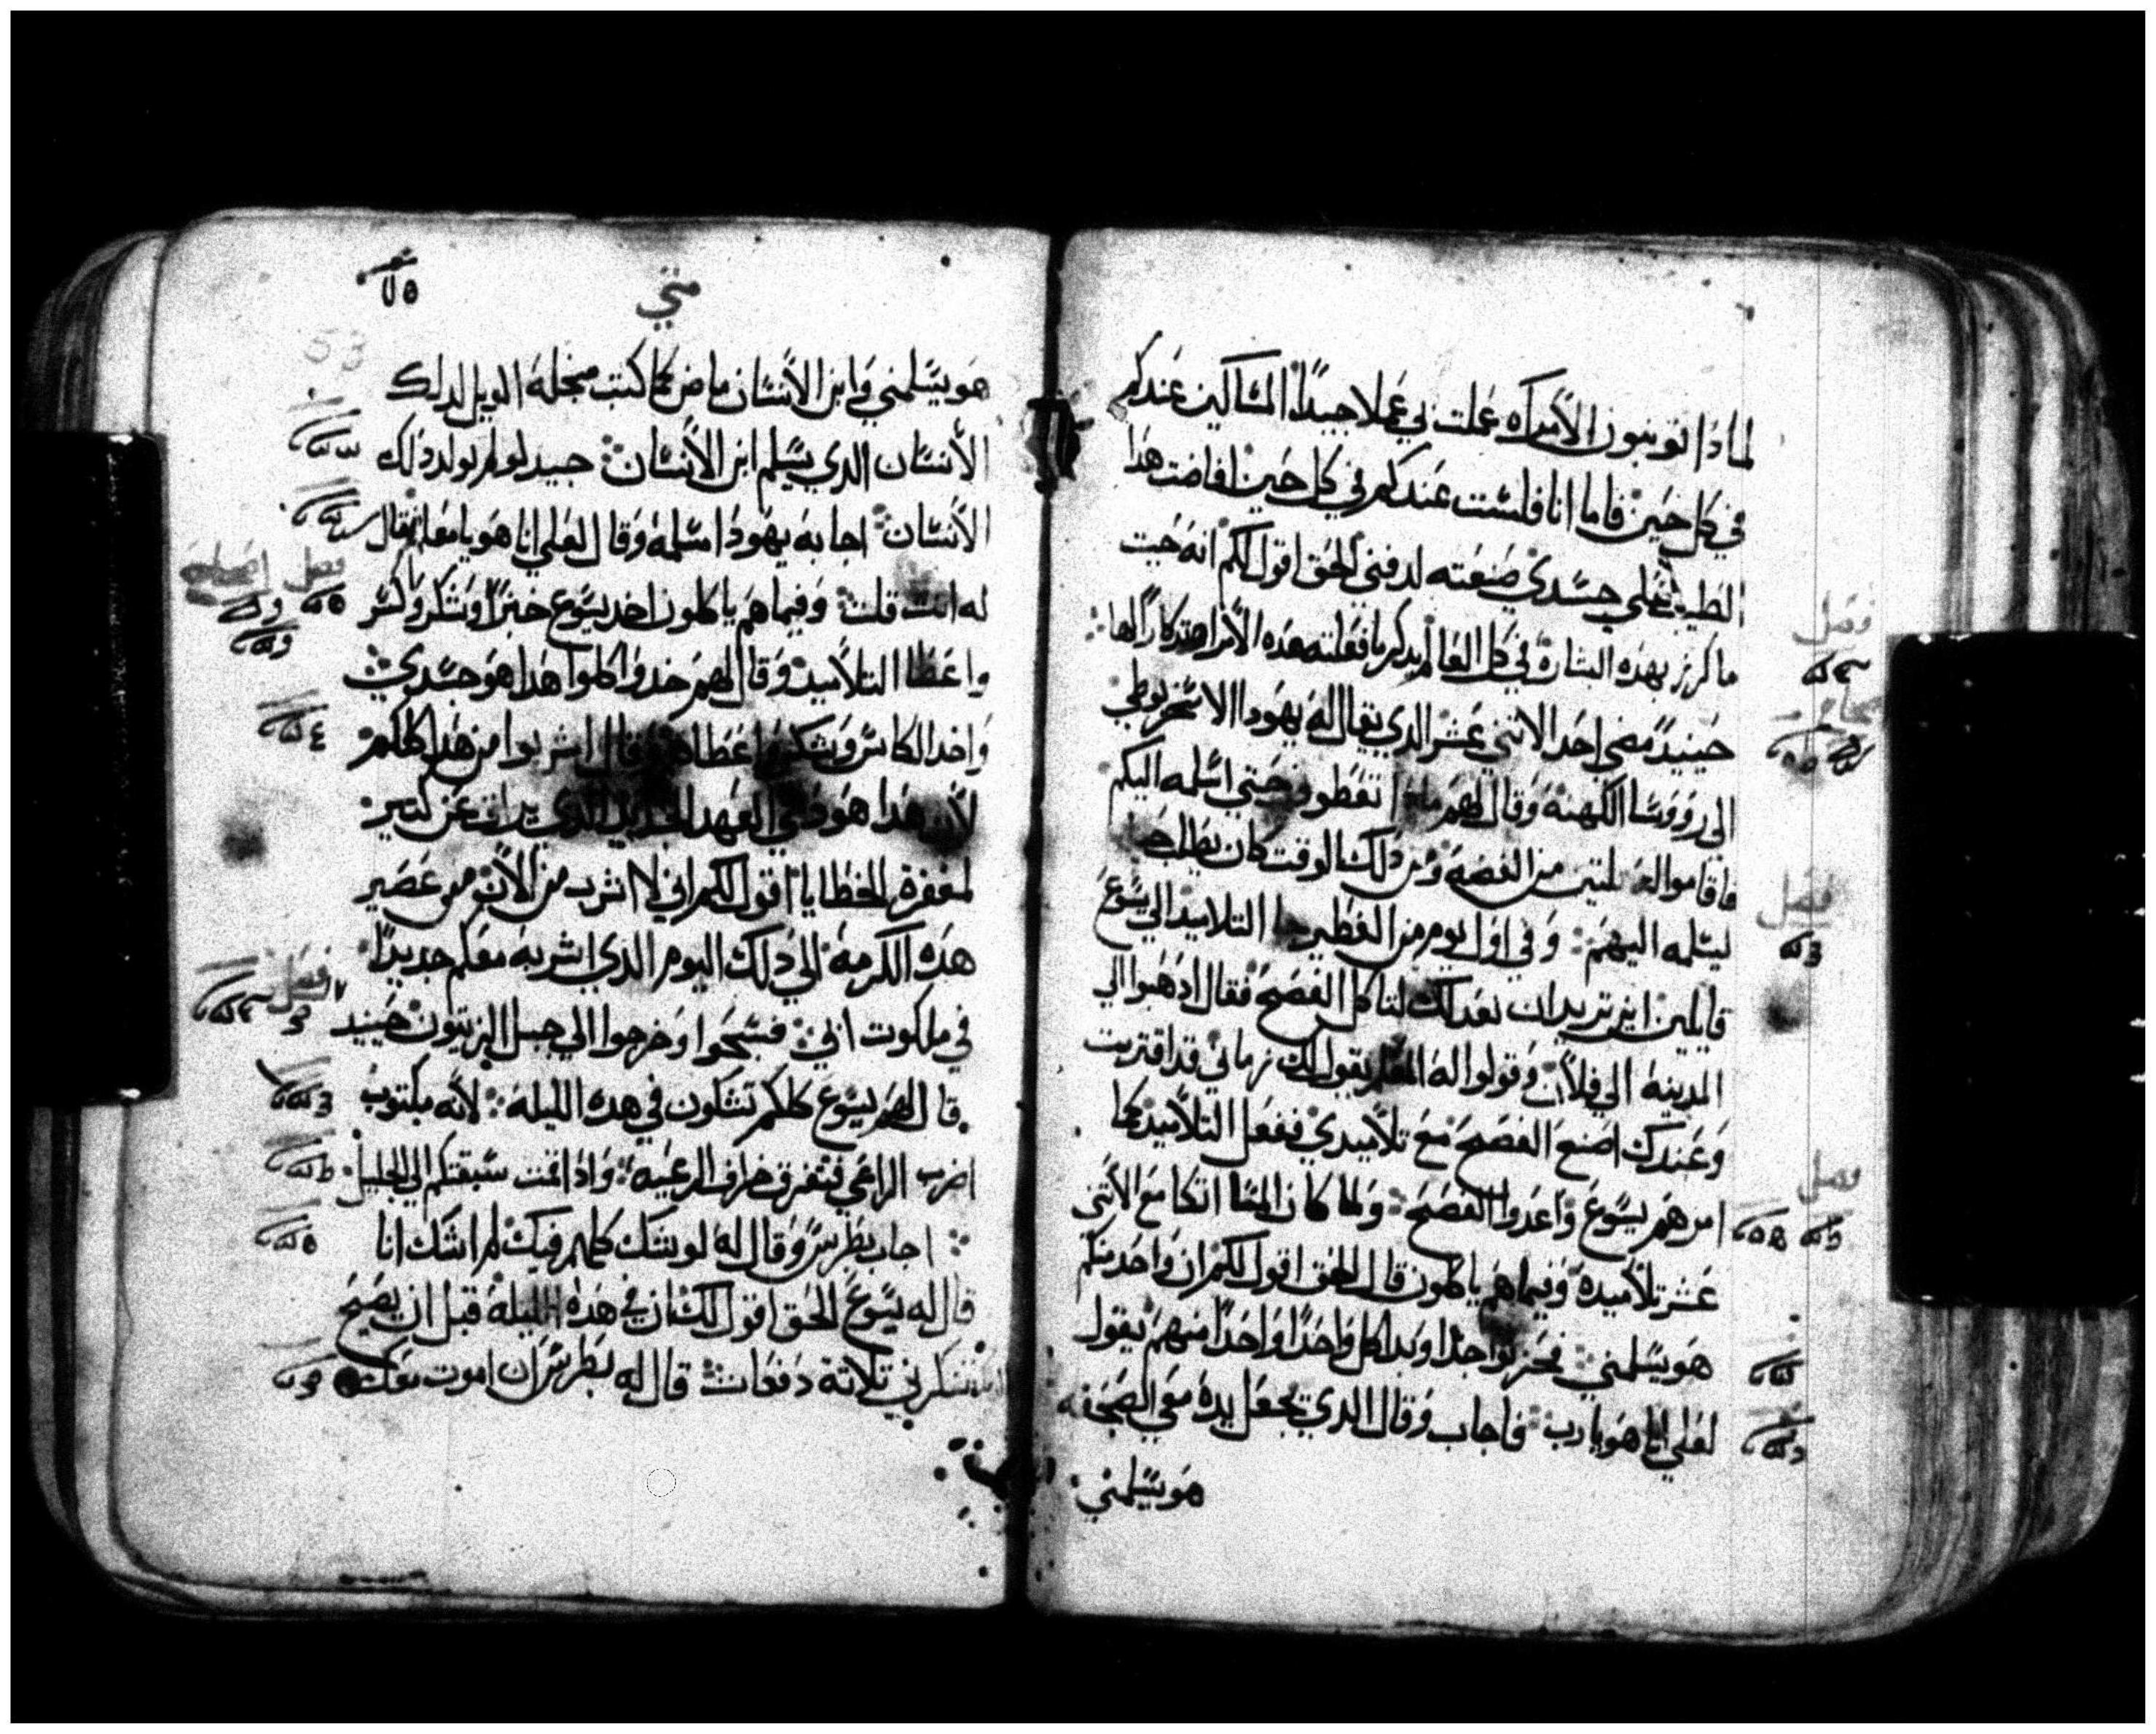 لمادا توبنون الأمراه عملت بي عملا جيداً المساكين عندكم
في كل حين فاما انا فلست عندكم في كل حين افاضت هدا
الطيب على جسدي صنعته لدفني الحق اقول لكم انه حيت
ما كرز بهده البشارة في كل العالم يدكر ما فعلته هده الأمراه تدكاراً لها
حينيد مضى احد الاتني عشر الدي يقال له يهودا الاسخريوطي
الى رووسا الكهنة وقال لهم تعطوني حتي اسلمه اليكم
فاقاموا له من الفضة ومن دلك الوقت كان يطلب
ليسلمه اليهم وفي اول يوم من الفطير جا التلاميد الي يسوع
قايلين اين تريد ان نعد لك لناكل الفصح فقال ادهبوا الي
المدينة الي فلان وقولوا له المعلم يقول لك زماني قد اقتربت
وعندك اصنع الفصح مع تلاميدي ففعل التلاميد كما
امرهم يسوع واعدوا الفصح ولما كان المسا اتكا مع الأتني
عشر تلاميده وفيما هم ياكلون قال الحق اقول لكم ان واحد منكم
هو يسلمني فحزنوا جدا وبدا كل واحداً واحداً منهم يقول
لعلي انا هو يا رب فاجاب وقال الدي يجعل يده معي الصحفه
هو يسلمني
متي
٧٥
53
هو يسلمني وابن الأنسان ماض كما كتب من اجله الويل لدلك
الأنسان الدي يسلم ابن الأنسان جيد لو لم يولد دلك
الأنسان اجابه يهودا مسلمه وقال لعلي انا هو يا معلم فقال
له انت قلت وفيما هم ياكلون اخد يسوع خبزاً وشكر وكسر
واعطا التلاميد وقال لهم خدوا كلوا هدا هو جسدي
واخد الكاس وشكر واعطاهم وقال اشربوا من هدا كلكم
لأن هدا هو دمي العهد الجديد الدي يراق عن كتير
لمغفرة الخطايا اقول لكم اني لا اشرب من الأن من عصير
هده الكرمة الي دلك اليوم الدي اشربه معكم جديداً
في ملكوت ابي فسبحوا وخرجوا الي جبل الزيتون حينيد
قال لهم يسوع كلكم تشكون في هده الليله لأنه مكتوب
اضرب الراعي فتفرق خراف الرعيه وادا قمت سبقتكم الي الجليل
اجاب بطرس وقال له لو شك كلهم فيك لم اشك انا
قال له يسوع الحق اقول لك ان في هده الليلة قبل ان يصيح
تنكرني تلاتة دفعات قال له بطرس ان اموت معك